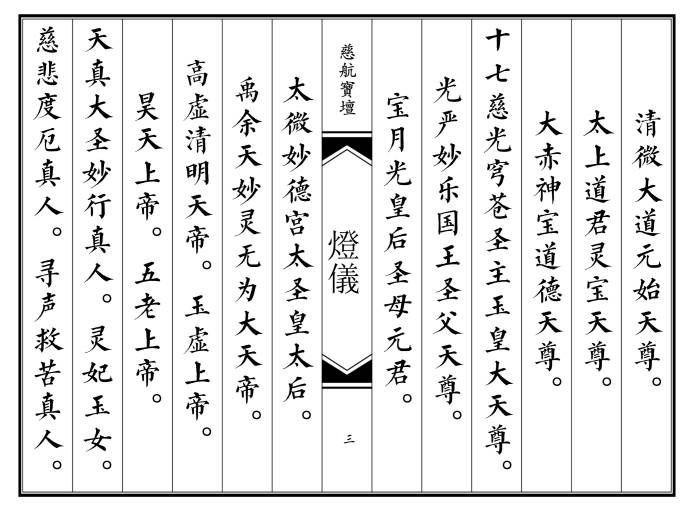 清微大道元始天尊。
太上道君灵宝天尊。
大赤神宝道德天尊。
十七慈光穹苍圣主玉皇大天尊。
光严妙乐国王圣父天尊。
宝月光皇后圣母元君。
慈航寶壇
燈儀
三
太微妙德宫太圣皇太后。
禹余天妙灵无为大天帝。
高虚清明天帝。玉虚上帝。
昊天上帝。五老上帝。
天真大圣妙行真人。灵妃玉女。
慈悲度厄真人。寻声救苦真人。